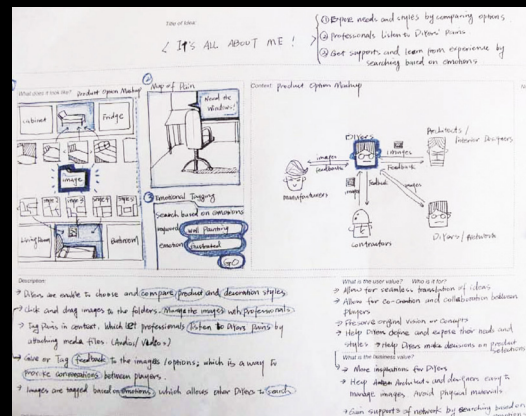 Title of Idea
< IT'S ALL ABOUT ME !
① Expose needs and styles by comparing options
② Professionals listen to DIYers' Pains
③ Get supports and learn from experience by
searching based on emotions
What does it look like? Product Option Mashup
cabinet
Fridge
image
Living Room
Bathroom
② Map of Pain
Need the
windows!
③ Emotional Tagging
search based on emotions
keyword Wall Painting
emotion frustrated
GO
Context Product Option Mashup
DIYers
Architects /
Interior Designers
images
Feedback
images
Feedbacks
manufacturers
image
feedback
images
contractors
DIYers / Network
Description:
→ DIYers are enable to choose and compare product and decoration styles
→ click and drag images to the folders. Manage the images with professionals
→ Tag Pains in context. Which let professionals listen to DIYers Pains by
attaching media files. (Audio / Video)
→ Give or Tag feedback to the images / options, which is a way to
provoke conversations between players.
→ Images are tagged based on emotions which allows other DIYers to search
What is the user value? Who is it for?
→ Allow for seamless translation of ideas
→ Allow for co-creation and collaboration between
players
→ Preserve original vision or concepts
→ Help DIYers define and expose their needs and
styles → Help DIYers make decisions on product
selections
What is the business value?
→ More inspirations for DIYers
→ Help Architects and designers easy to
manage images Avoid physical materials
→ Gain supports of network by searching based on